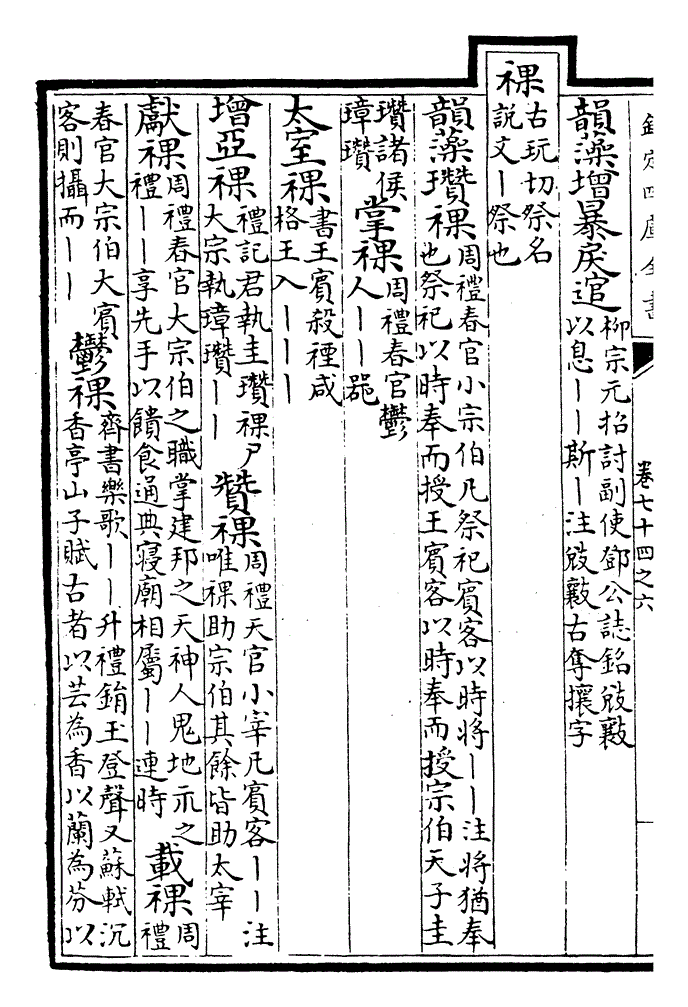 欽定四庫全書
卷七十四之六
韻藻增暴戾逭柳宗元招討副使鄧公誌銘敚
以息丨丨斯丨注敚古奪攘字
祼古玩切祭名
説文丨祭也
韻藻瓚祼周禮春官小宗伯凡祭祀賓客以時將丨丨注將猶奉
也祭祀以時奉而授王賓客以時奉而授宗伯天子圭
瓚諸侯
璋瓚掌祼周禮春官鬱
人丨丨器
太室祼書王賓殺禋咸
格王入丨丨丨
增亞祼禮記君執圭瓚祼尸
大宗執璋瓚丨丨贊祼周禮天官小宰凡賓客丨丨注
唯祼助宗伯其餘皆助太宰
獻祼周禮春官大宗伯之職掌建邦之天神人鬼地示之
禮丨丨享先手以饋食通典寢廟相屬丨丨連時載祼周
禮
春官大宗伯大賓
客則攝而丨丨鬱祼齊書樂歌丨丨升禮鋗玉登聲又蘇軾沉
香亭山子賦古者以芸為香以蘭為芬以